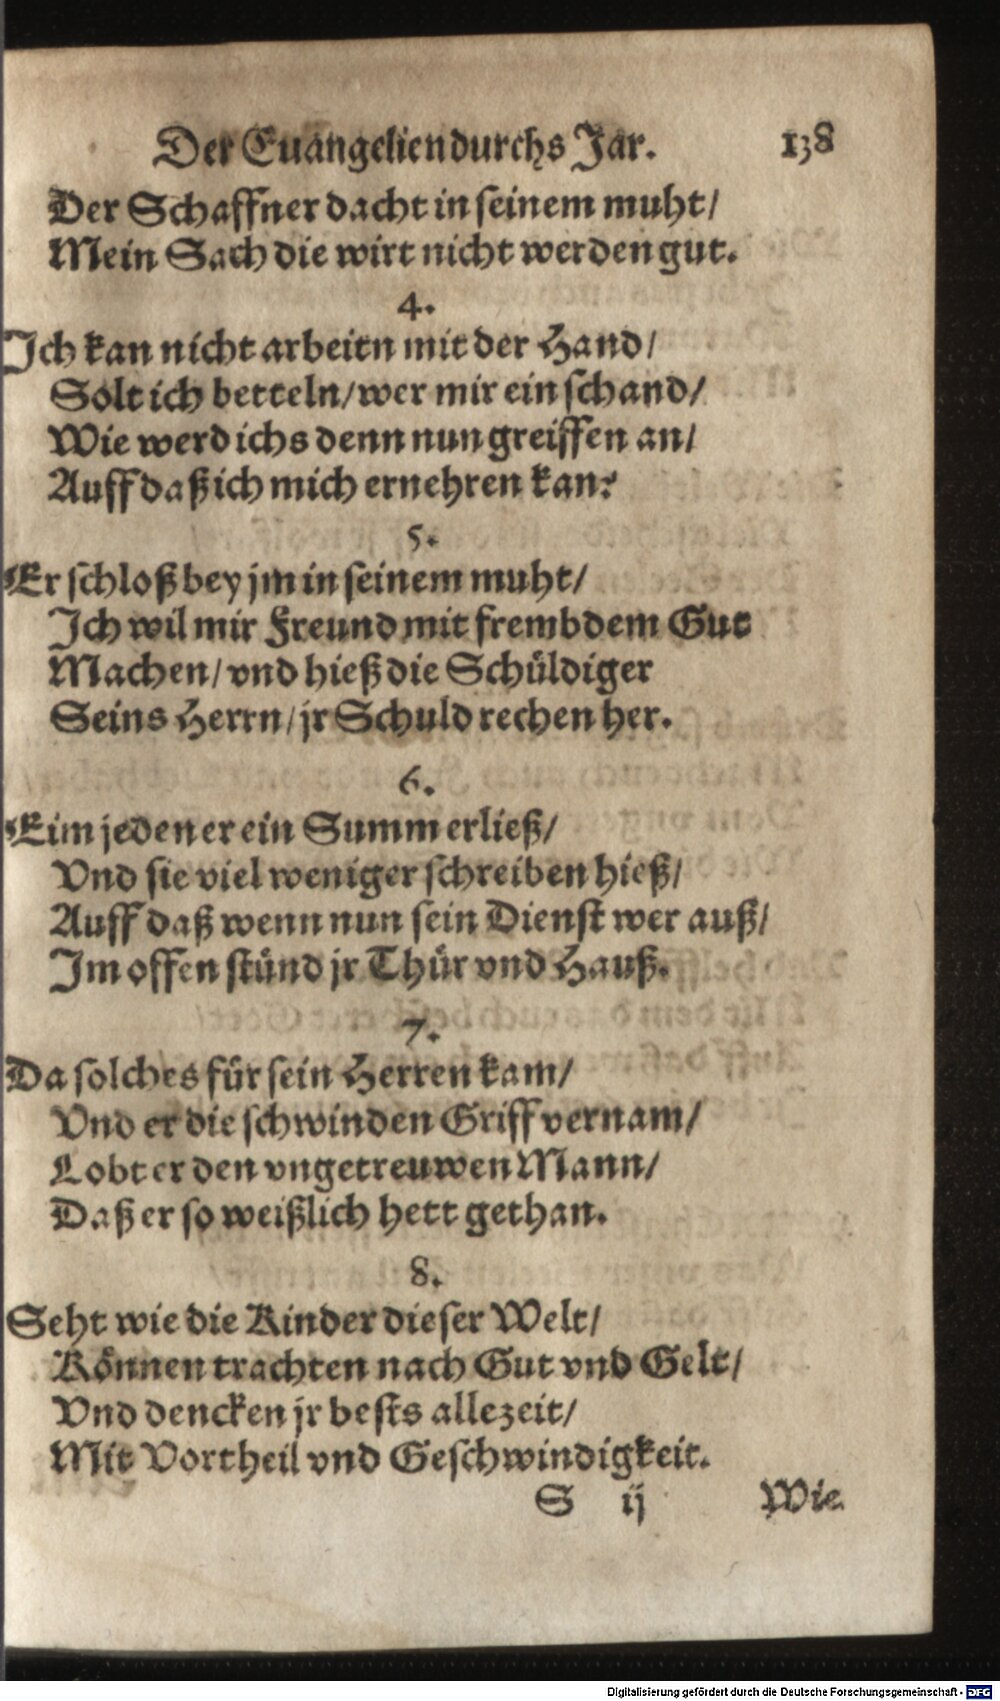 Der Euangelien durchs Jar. 138
Der Schaffner dacht in seinem muht/
Mein Sach die wirt nicht werden gut.
4.
Ich kan nicht arbeitn mit der Hand/
Solt ich betteln/ wer mir ein schand/
Wie werd ichs denn nun greiffen an/
Auff daß ich mich ernehren kan?
5.
Er schloß bey jm in seinem muht/
Ich wil mir Freund mit frembdem Gut
Machen/ vnd hieß die Schüldiger
Seins Herrn/ jr Schuld rechen her.
6.
Eim jeden er ein Summ erließ/
Vnd sie viel weniger schreiben hieß/
Auff daß wenn nun sein Dienst wer auß/
Im offen stünd jr Thür vnd Hauß.
7.
Da solches für sein Herren kam/
Vnd er die schwinden Griff vernam/
Lobt er den vngetreuwen Mann/
Daß er so weißlich hett gethan.
8.
Seht wie die Kinder dieser Welt/
Können trachten nach Gut vnd Gelt/
Vnd dencken jr bests allezeit/
Mit Vortheil vnd Geschwindigkeit.
S ij Wie
Digitalisierung gefördert durch die Deutsche Forschungsgemeinschaft - DFG